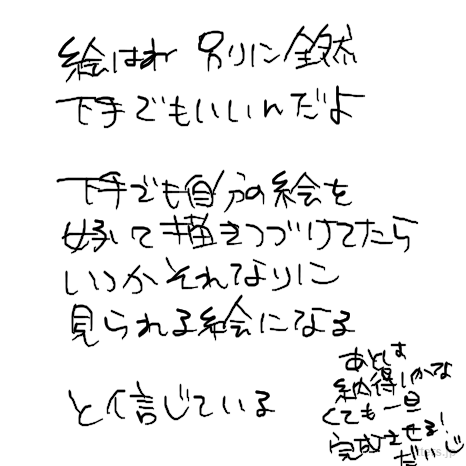 絵はね 別に全然
下手でもいいんだよ
下手でも自分の絵を
好いて描きつづけてたら
いつかそれなりに
見られる絵になる
と信じている
あとは
納得しかな
くても一旦
完成させる!
だいじ